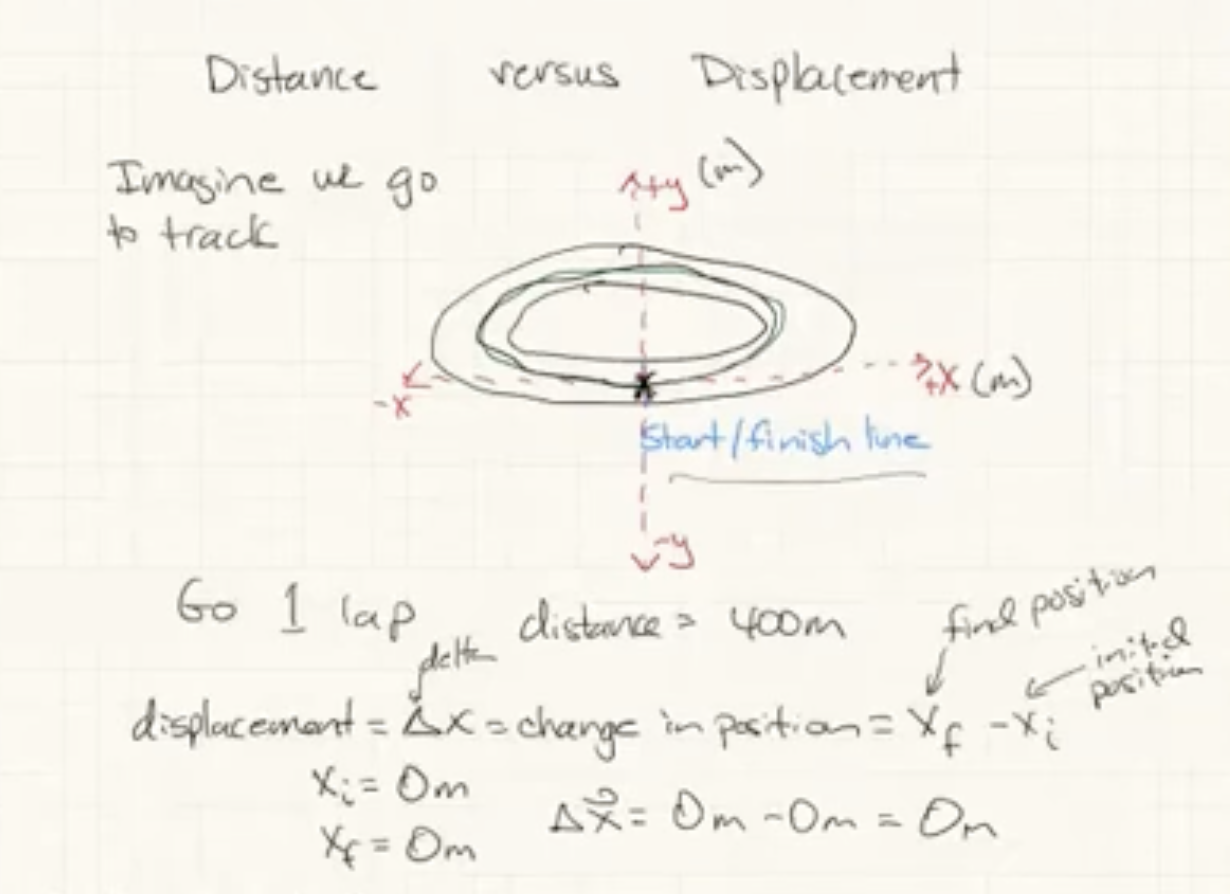 Distance versus Displacement
Imagine we go
to track
+y (m)
-x
+x (m)
Start/finish line
-y
Go 1 lap distance = 400m
final position
initial
position
delta
displacement = Δx = change in position = x_f - x_i
x_i = 0m
x_f = 0m
Δx⃗ = 0m - 0m = 0m